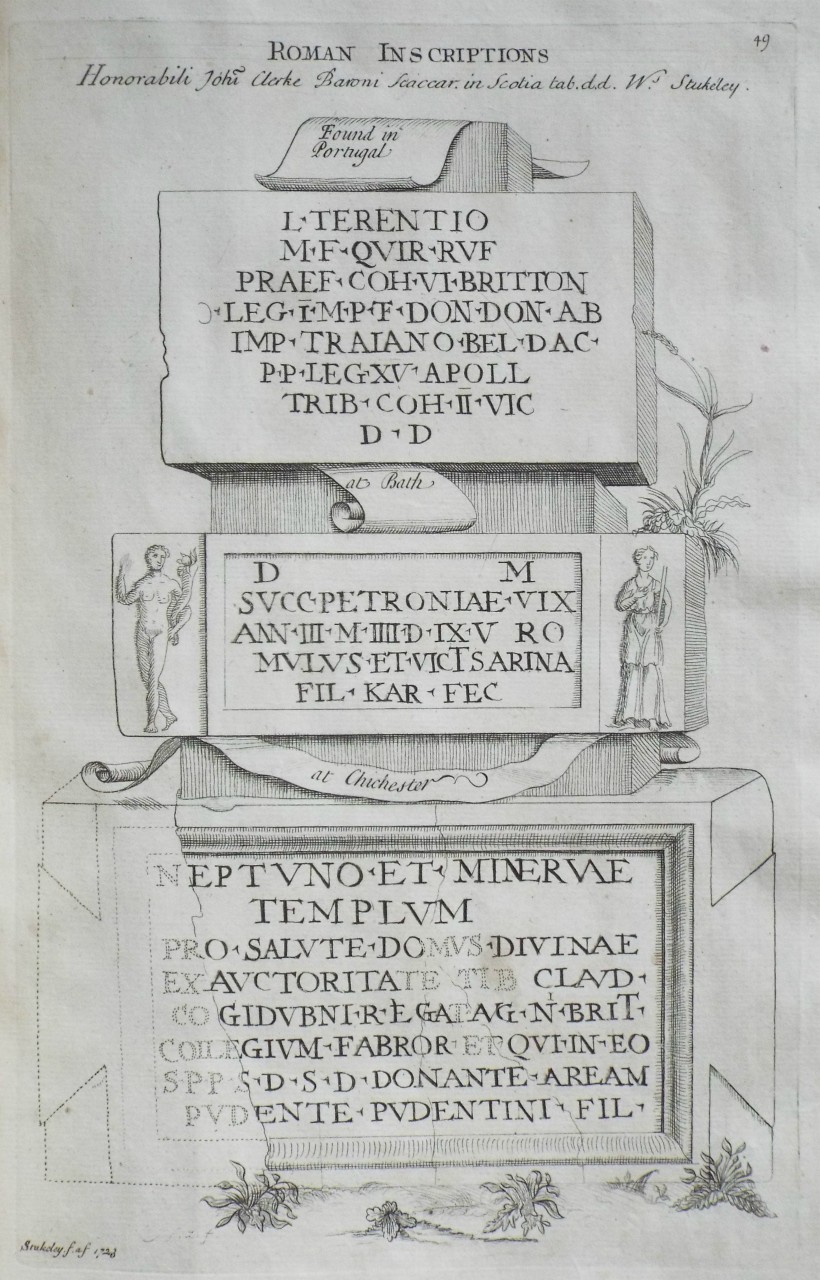 49
ROMAN INSCRIPTIONS
Honorabili Joh̃i Clerke Baroni Scaccar. in Scotia tab. d.d. W.^s Stukeley.
Found in
Portugal
L·TERENTIO
M·F·QVIR·RVF
PRAEF·COH·VI·BRITTON
Ɔ·LEG·Ī·M·P·F·DON·DON·AB
IMP·TRAIANO·BEL·DAC·
P·P·LEG·XV·APOLL
TRIB·COH·I̅I̅·VIC
D·D
at Bath
D M
SVCC·PETRONIAE·VIX
ANN·III·M·IIII·D·IX·V RO
MVLVS·ET·VICTSARINA
FIL·KAR·FEC
at Chichester
NEPTVNO·ET·MINERVAE
TEMPLVM
PRO·SALVTE·DOMVS·DIVINAE
EX·AVCTORITATE TIB CLAVD·
COGIDVBNI·R·LEGAT·AVG·N·BRIT·
COLLEGIVM·FABROR ET QVI·IN·EO
S·P·P·S·D·S·D·DONANTE·AREAM
PVDENTE·PVDENTINI·FIL·
Stukeley f. 1723